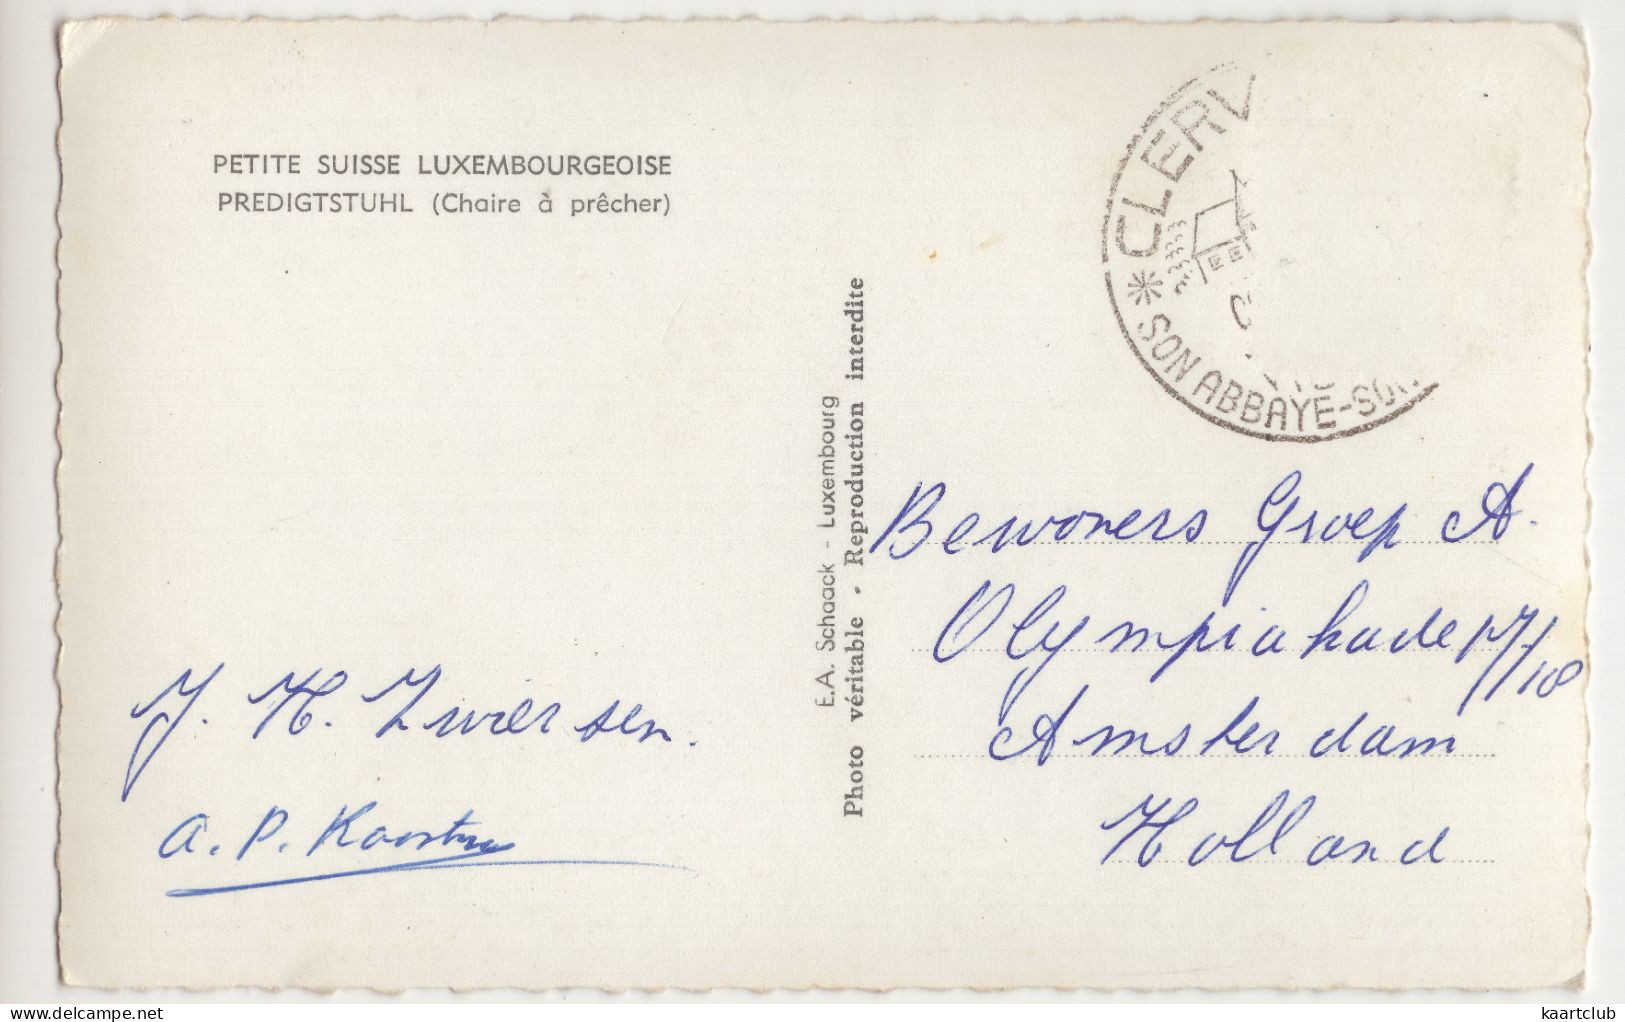 PETITE SUISSE LUXEMBOURGEOISE
PREDIGTSTUHL (Chaire à prêcher)
CLERV
SON ABBAYE-SO
E.A. Schaack - Luxembourg
Photo véritable - Reproduction interdite
Bewoners Groep A.
Olympiakade 17/18
Amsterdam
Holland
J. H. Zwiersen.
A. P. Koostra
delcampe.net
kaartclub